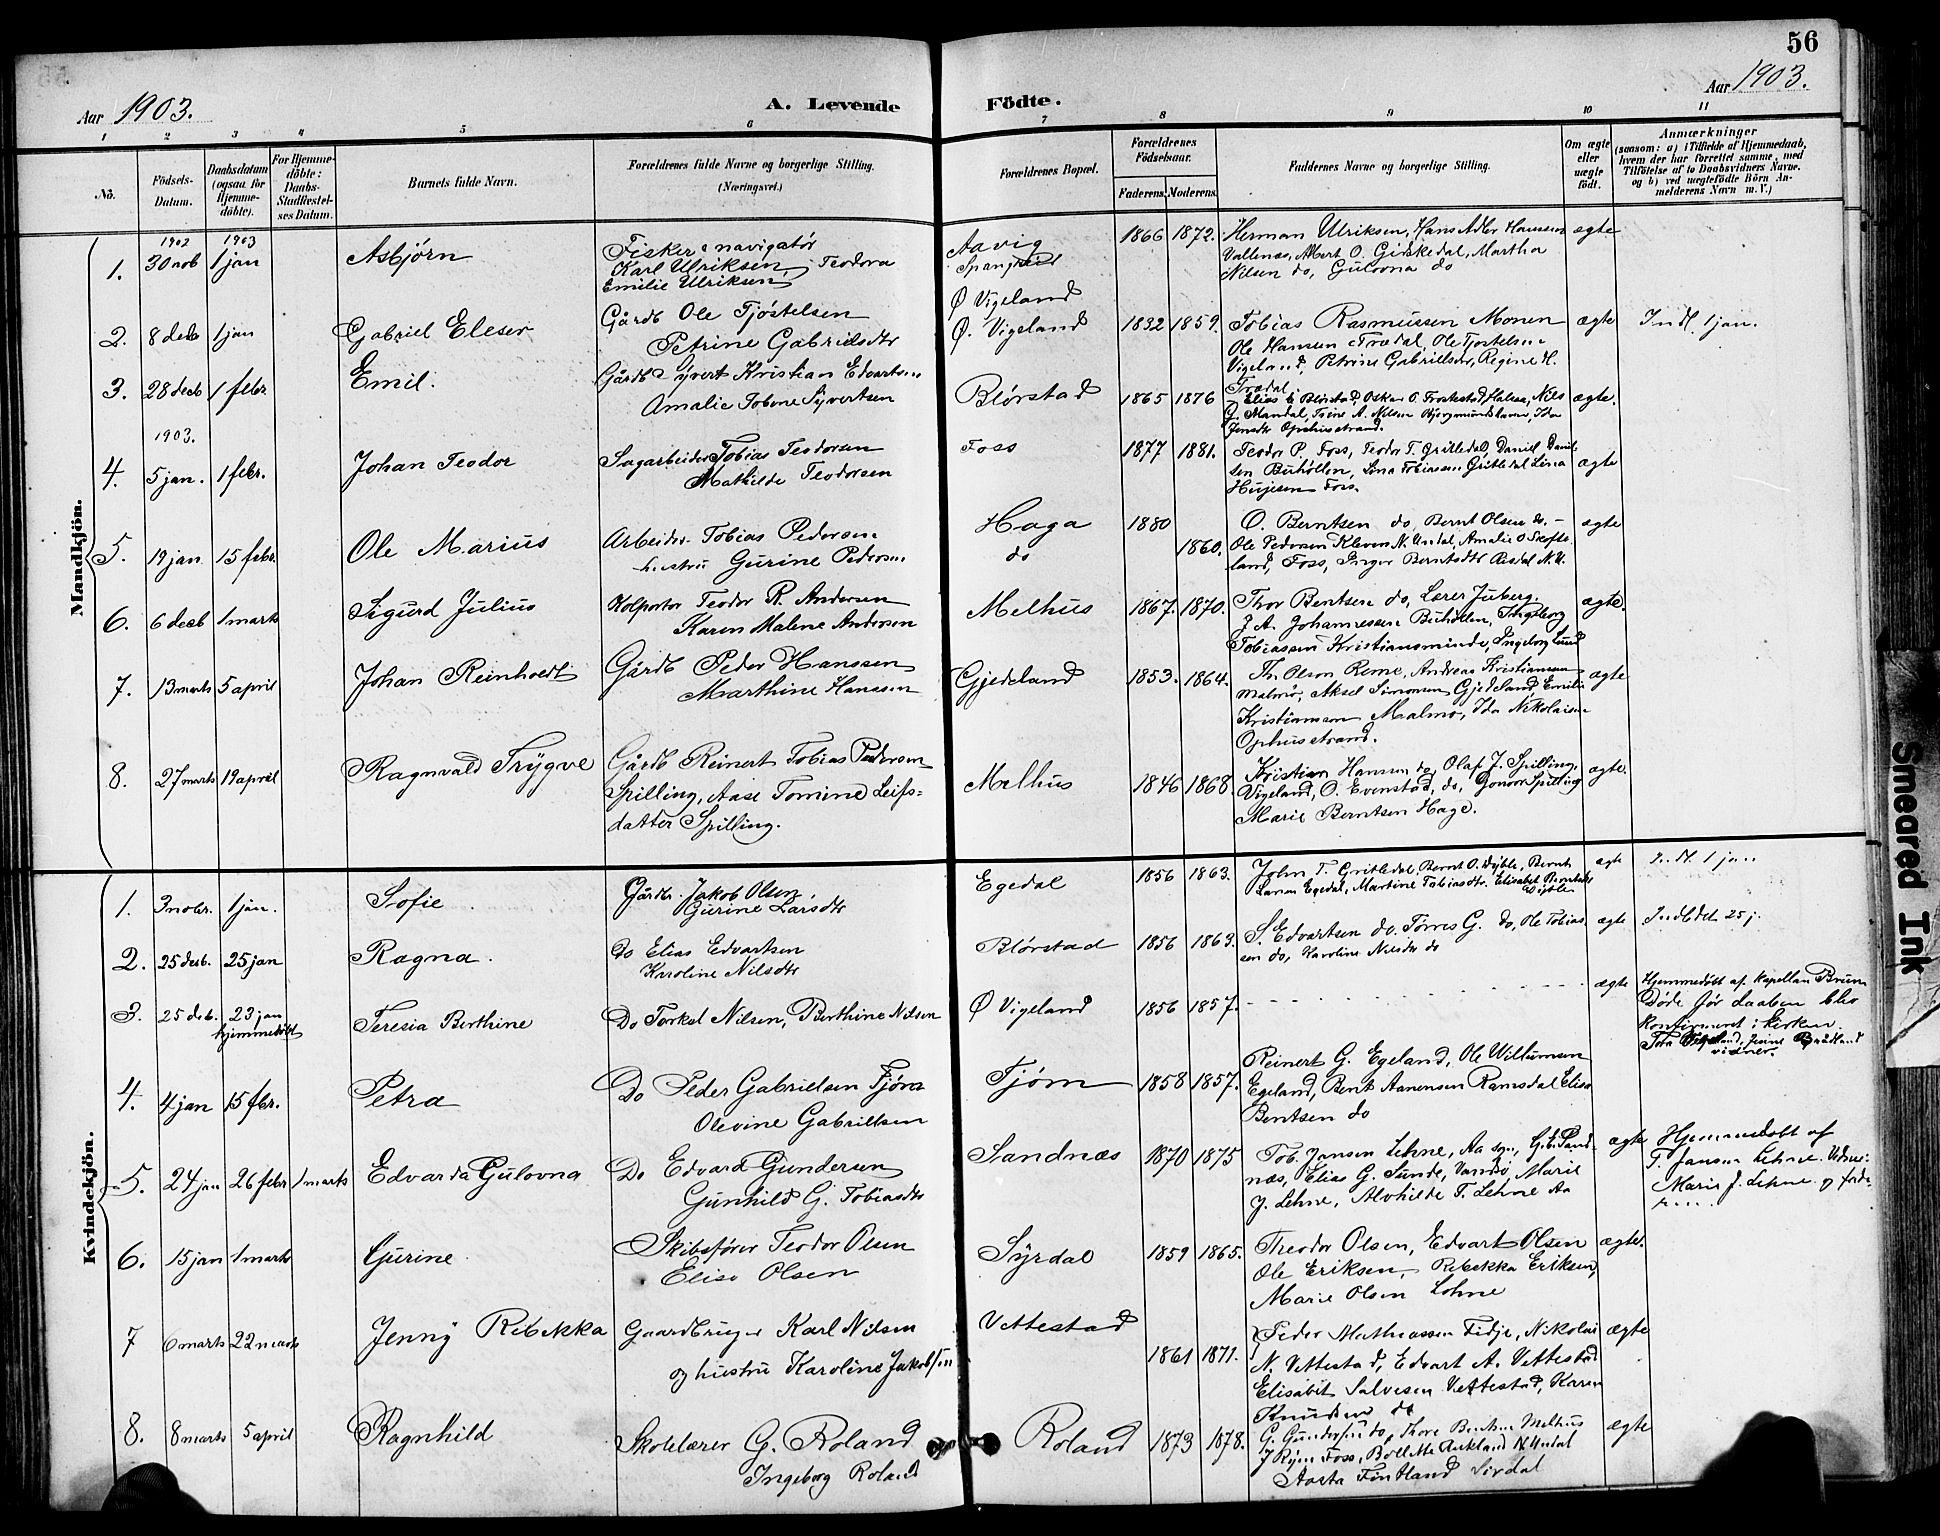 56
Aar 1903.
A. Levende Födte.
Aar 1903.
1 2 3 4 5 6 7 8 9 10 11
Nö.
Födsels-Datum.
Daabsdatum (ogsaa for Hjemme-döbte).
For Hjemme-döbte: Daabs-Stadfæstel-ses Datum.
Barnets fulde Navn.
Forældrenes fulde Navne og borgerlige Stilling. (Næringsvei.)
Forældrenes Bopæl.
Forældrenes Födselsaar.
Faderens. Moderens.
Faddernes Navne og borgerlige Stilling.
Om ægte eller uægte födt.
Anmærkninger
(saasom: a) i Tilfælde af Hjemmedaab, hvem der har forrettet samme, med Tilföielse af to Daabsvidners Navne. og b) ved uægtefödte Börn An-melderens Navn m. V.)
Mandkjön.
1902 1903
1. 30 nob 1 jan Asbjørn
Fisker & navigatør
Karl Ulriksen, Teodora
Emilie Ulriksen
Aavig
Spangreid
1866 1872.
Herman Ulriksen, Hans Adler Hansen
Vallenæs, Albert O. Gidskedal, Martha
Nilsen do, Gulovna do
ægte
Ø Vigeland
2. 8 decb 1 jan Gabriel Eleser
Gårdb Ole Tjøstelsen
Petrine Gabrielsdtr
Ø. Vigeland
1832 1859.
Tobias Rasmussen Monen
Ole Hansen Trædal, Ole Tjostelsen
Vigeland, Petrine Gabrielsen, Regine H.
Trædal
ægte
Indl. 1 jan.
3. 28 decb 1 febr. Emil.
Gårdb Syvert Kristian Edvartsen
Amalie Tobine Syvertsen
Blørstad
1865 1876
Elias E Blørstad, Oskar O. Frostestad, Halsaa, Nils
J. Mandal, Trine A. Nilsen Bjergmundshavn, Ida
Jensdtr Ophusstrand.
ægte.
1903.
4. 5 jan. 1 febr. Johan Teodor
Sagarbeider Tobias Teodorsen
Mathilde Teodorsen
Foss
1877 1881.
Teodor P. Foss, Teodor T. Gritledal, Daniel Daniel
sen Buhøllen, Lina Tobiassen Gritledal Lina
Hujesen Foss.
ægte
5. 19 jan 15 febr. Ole Marius
Arbeider Tobias Pedersen
hustru Gurine Pedersen
Haga
do
1880
1860.
O. Berntsen do, Bernt Olsen do. -
Ole Pedersen Kleven N. Undal, Amalie O Skofte
land, Foss, Inger Berntsdtr Risdal N. U.
ægte
6. 6 decb 1 marts Sigurd Julius
Kolportør Teodor R. Andersen
Karen Malene Andersen
Melhus
1867. 1870.
Thor Bentsen do, Lærer Juberg.
J A. Johannessen Buhøllen, Ingeborg
Tobiassen Kristiansminde, Ingeborg Lund
ægte.
7. 13 marts 5 april Johan Reinholdt
Gårdb Peder Hanssen
Marthine Hanssen
Gjedeland
1853. 1864.
Th. Olson Reme, Andreas Kristiansen
Malmø, Aksel Simonsen Gjedeland, Emilie
Kristiansen Malmø, Ida Nikolaisen
Ophusstrand.
ægte
8. 27 marts 19 april Ragnvald Trygve
Gårdb Reinert Tobias Pedersen
Spilling, Aase Tomine Leifs=
datter Spilling.
Melhus
1846 1868.
Kristian Hansen do, Olaf J. Spilling,
Vigeland, O. Evenstad, do, Gonvor Spilling
Marie Berntsen Hage.
ægte.
Kvindekjön.
1. 3 nobr. 1 jan. Sofie
Gårdbr. Jakob Olsen,
Gurine Larsdtr
Egedal
1856 1863.
John T. Gritledal Bernt O. Dyble, Bernt
Larsen Egedal, Martine Tobiasdtr. Elisabet Berntsdtr
Dyble
ægte
Indl. 1 jan.
2. 25 decb. 25 jan Ragna.
Do Elias Edvartsen
Karoline Nilsdtr
Blørstad
1856 1863.
S. Edvartsen do. Torres G. do, Ole Tobias
sen do, Karoline Nilsdtr do
ægte
Indledet 25 j.
3. 25 decb. 23 jan hjemmedøbt Teresia Berthine
Do Torkel Nilsen, Berthine Nilsen
Ø Vigeland
1856 1857.
ægte
Hjemmedøbt af Kapellan Bruun
Døde før daaben blev
konfirmeret i kirken.
vidner.
4. 4 jan 15 fbr. Petra
Do Peder Gabrielsen Tjørn
Olevine Gabrielsen
Tjørn
1858 1857.
Reinert G. Egeland, Ole Willumsen
Egeland, Bent Aanensen Ramsdal Elisa
Bentsen do
5. 24 jan 26 febr 1 marts Edvarda Gulovna
Do Edvard Gundersen
Gunhild G. Tobiasdtr
Sandnæs
1870 1875
Tob. Jansen Lehne, Aa sgn, G. E. Sand
næs, Elias G. Sunde, Vansø Marie
J. Lehne, Alvhilde T. Lehne Aa
ægte
Hjemmedøbt af
T. Jansen Lehne. Vidner
Marie J. Lehne og
6. 15 jan 1 marts Gurine
Skibsfører Teodor Olsen
Elise Olsen
Syrdal
1859 1865.
Theodor Olsen, Edvart Olsen
Ole Eriksen, Rebekka Eriksen,
Marie Olsen Lohne
ægte.
7 6 marts 22 marts Jenny Rebekka
Gaardbruger Karl Nilsen
og hustru Karoline Jakobsen
Vettestad
1861 1871.
Peder Mathiassen Fidje, Nikolai
N. Vettestad, Edvart A. Vettestad
Elisabet Salvesen Vettestad, Karen
Knudsen do
ægte
8. 8 marts 5 april Ragnhild
Skolelærer G. Roland
Ingeborg Roland
Roland
1873 1878.
G. Gundersen do, Thore Bentsen Melhus
J Røjen Foss, Bollette Aukland N. Undal
Aasta Fintland Sirdal
ægte
Smeared Ink